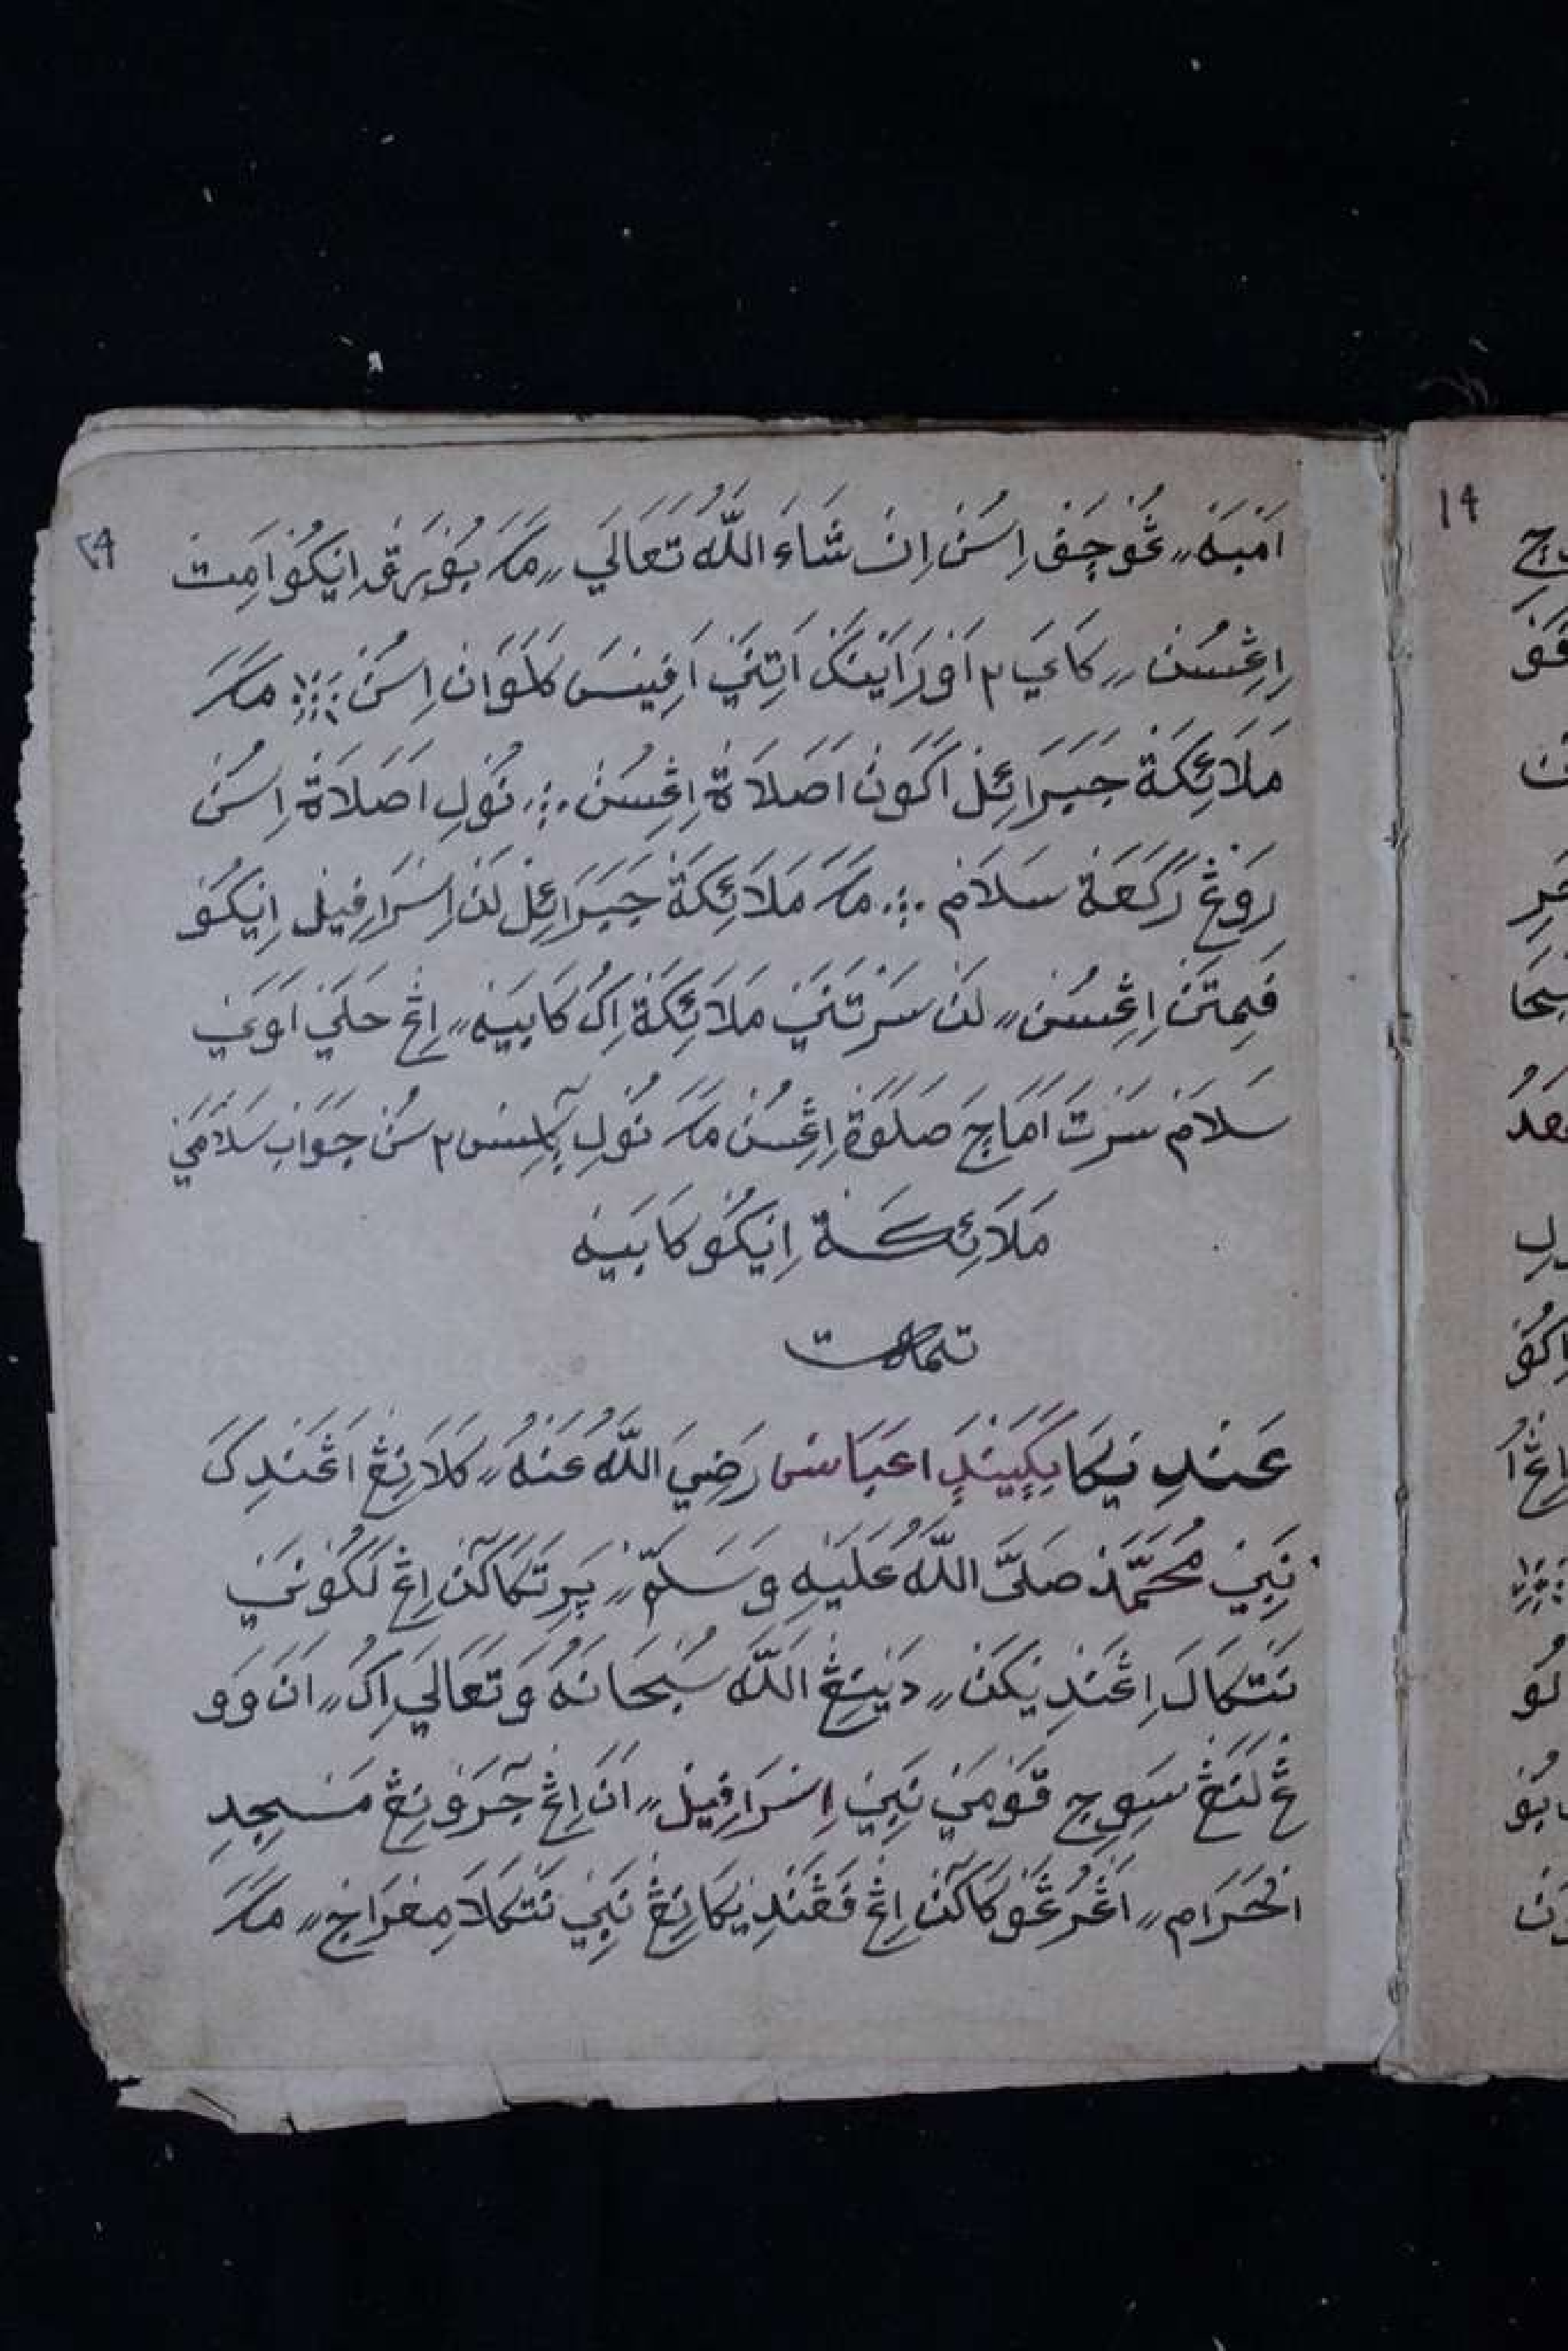 ٢٩
اَمْبَهْ ,, ڠُوْچَفْ اِسُنْ اِنْ شَاءَ اللّٰهُ تَعَالَي ,, مَكَ بُوْرَقْ اِيْكُوْ اَمِتْ
اِڠْسُنْ ,, كَايَ٢ اَوْرَ اَيْنَكْ اَتِنَيْ اَفِيْسَ كَلَوَانْ اِسُنْ ؞ مَكَ
مَلَائِكَةْ جَبَرَائِلْ اَكَوْنْ اَصَلَاةْ اِڠْسُنْ ؞ نُوْلِ اَصَلَاةْ اِسُنْ
رَوْڠْ رَكَعَةْ سَلَامْ ؞ مَكَ مَلَائِكَةْ جَبَرَائِلْ لَنْ اِسْرَارَفِيْلْ اِيْكُوْ
فَمِتَنْ اِڠْسُنْ ,, لَنْ سَرْتَنَيْ مَلَائِكَةْ اِكُ كَابَيْهْ ,, اِڠْ حَلَيْ اَوَيْ
سَلَامْ سَرْتَ اَمَاچَ صَلَوَةْ اِڠْسُنْ مَكَ نُوْلِ سُنْ جَوَابْ سَلَامَيْ
مَلَائِكَةْ اِيْكُوْ كَابَيْهْ
تمت
عَنْدِيْكَا بَكِيْنْدَ اعَبَاسْ رَضِيَ اللّٰهُ عَنْهُ ,, كَلَانِڠْ اَڠَنْدِكَ
نَبِيْ مُحَمَّدْ صَلَّى اللّٰهُ عَلَيْهِ وَسَلَّمْ ,, پَرْتَكَاكَنْ اِڠْ لَكُوْنَيْ
نَتْكَالَ اِڠَنْدِيْكَنْ ,, دَيْنِڠْ اَللّٰهْ سُبْحَانَهُ وَتَعَالَي اِكُ ,, اَنَ وَوْ
ڠْ لَنَڠْ سَوِجِ قَوْمَيْ نَبِيْ اِسْرَارَفِيْلْ ,, اَنَ اِڠْ جَرَوْنِڠْ مَسْجِدِ
الْحَرَامْ ,, اَڠْرُڠَوْكَاكَنْ اِڠْ فَڠَنْدِيْكَانِڠْ نَبِيْ نَتْكَلَا مِعْرَاجْ ,, مَكَ
١٩